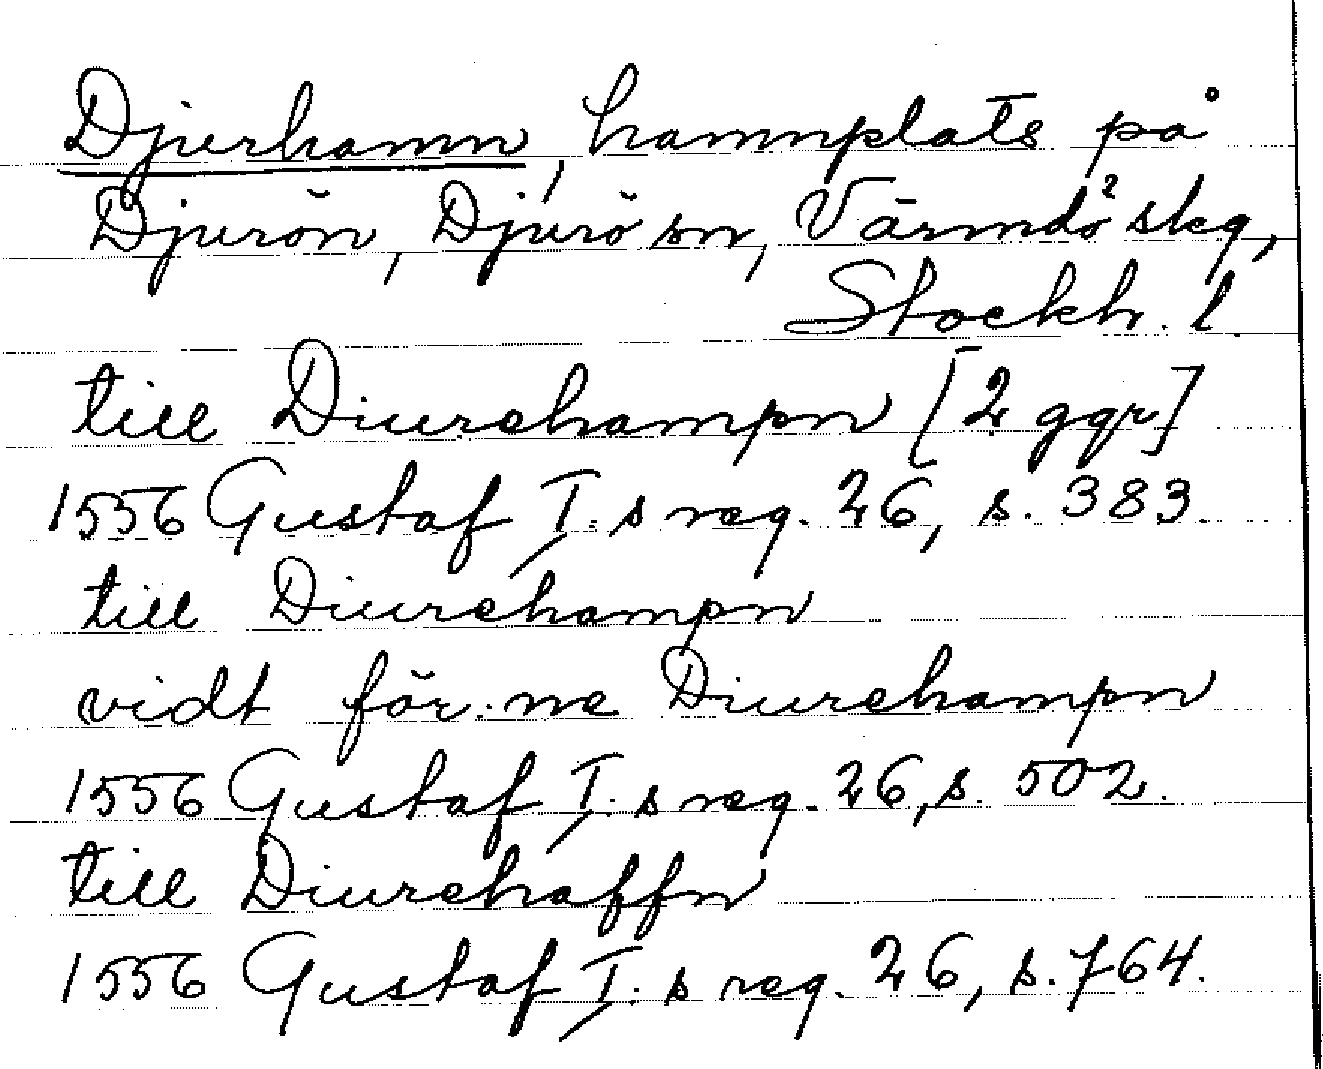 Djurhamn, hamnplats på
Djurön, Djurö sn, Värmdö skg,
Stockh. l.
till Diurehampn [2 ggr]
1556 Gustaf I:s reg. 26, s. 383.
till Diurehampn
vidt för:ne Diurehampn
1556 Gustaf I:s reg. 26, s. 502.
till Diurehaffn
1556 Gustaf I:s reg. 26, s. 764.